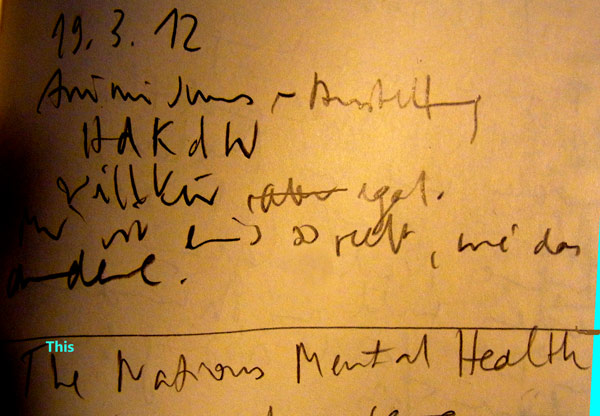 19.3.12
Animismus-Ausstellung
HdKdW
Willkür aber egal.
Mir ist eins so recht, wie das
andere.
This
The Nations Mental Health